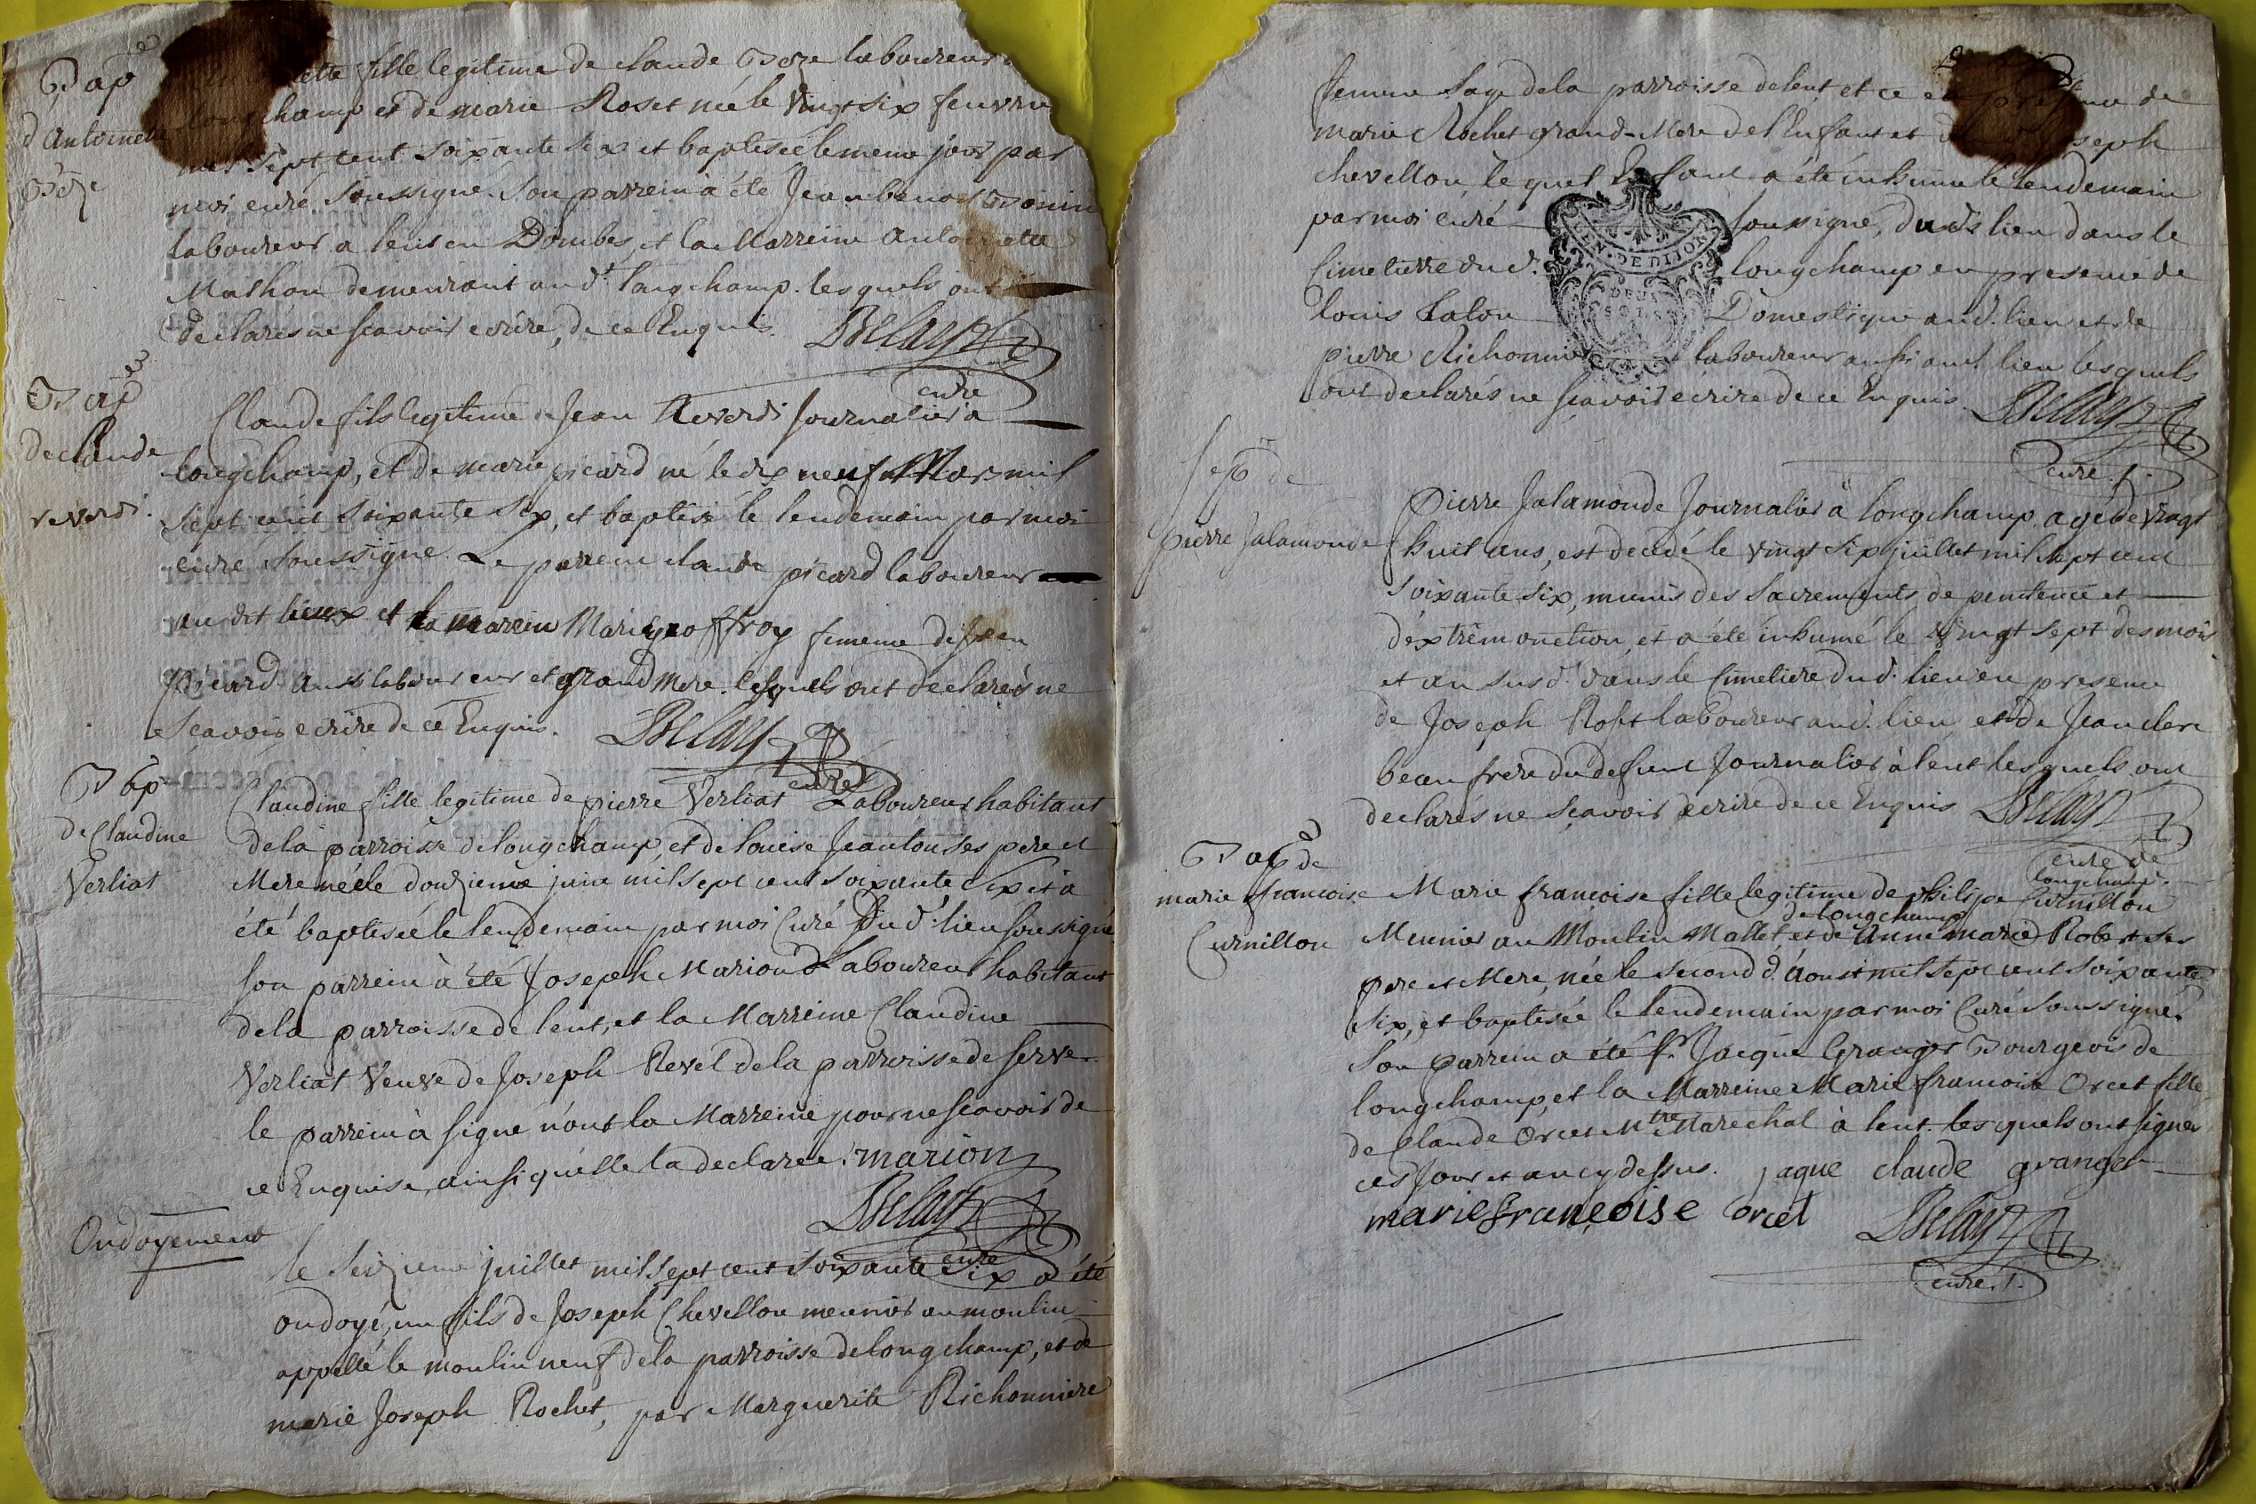 Bap.e
d'Antoinette
Boze
ette fille legitime de claude Boze laboureur a
longchamp et de marie Roset née le vingt six feuvrie
mil sept cent soixante six et baptisée le meme jour par
moi curé soussigné son parrein a été Jean benoit Bonin
laboureur a lent en Dombes, et la Marreine Antoinette
Mathon demeurant au d.t longchamp. lesquels ont
declarés ne scavoir ecrire, de ce Enquis. Belay
curé
Bap.e
de claude
reverdi.
Claude fils legitime de Jean Reverdi Journalier a
longchamp, et de marie picard né le dix neuf Mars mil
sept cent soixante six, et baptisé le lendemain par moi
curé soussigné. Le parrein claude picard laboureur
au dit lieux et la marein Marie joffroy femme de jean
picard aussi laboureur et grand mere. lesquels ont declarés ne
scavoir ecrire de ce Enquis. Belay
curé
Bap
de Claudine
Verliat
Claudine fille legitime de pierre Verliat Laboureur habitant
de la parroisse de longchamp, et de louise Jeanton ses pere et
Mere née le douzieme juin mil sept cent soixante six et à
été baptisée le lendemain par moi Curé du d.t lieu soussigné
son parrein à été Joseph Mariond Laboureur habitant
de la parroisse de lent, et la Marreine Claudine
Verliat Veuve de Joseph Revel de la parroisse de serve.
le parrein à signé non la Marreine pour ne scavoir de
ce Enquise, ainsi qu'elle la declarée. marion
Belay
curé
Ondoyement
le seizieme juillet mil sept cent soixante six a été
ondoyé, un fils de Joseph Chevellon meunier au moulin
appellé le moulin neuf de la parroisse de longchamp, et de
marie Joseph Rochet, par Marguerite Richonniere
femme sage de la parroisse de lent et ce en presence de
marie Rochet grand-Mere de l'Enfant et de Joseph
chevellon, le quel Enfant a été inhumé le lendemain
par moi Curé soussigné, dud.t lieu dans le
Cimetierre du d.t longchamp en presence de
louis Laton Domestique aud. lieu et de
pierre Richonnier laboureur aussi aud. lieu lesquels
ont declarés ne scavoir ecrire de ce Enquis. Belay
curé.
GEN. DE DIJON
DEUX
SOLS
Sep.re de
pierre Jalamonde
pierre Jalamonde Journalier à longchamp, agé de vingt
huit ans, est decedé le vingt six juillet mil sept cent
soixante six, munis des sacrements de penitence et
d'extrêmonction, et a été inhumé le vingt sept des mois
et an susd.t dans le Cimetiere dud. lieu en presence
de Joseph Roset laboureur aud. lieu et de Jean clerc
beau frere du defunt Journalier à lent lesquels ont
declarés ne scavoir ecrire de ce Enquis Belay
curé de
longchamp.
Bap.e de
marie francoise
Curnillon
Marie francoise fille legitime de philipe Curnillon
de longchamp
Meunier au Moulin Mallet et de Anne marie Robert ses
pere et Mere, née le second d'Aoust mil sept cent soixante
six, et baptisée le lendemain par moi Curé soussigné.
Son parrein a été s.r Jacque Granger Bourgeois de
longchamp, et la Marreine Marie francoise Orcet fille
de Claude Orcet M.tre Marechal à lent. lesquels ont signer
ces Jour et an cy dessus. jaque claude granger
marie françoise orcet Belay
curé.